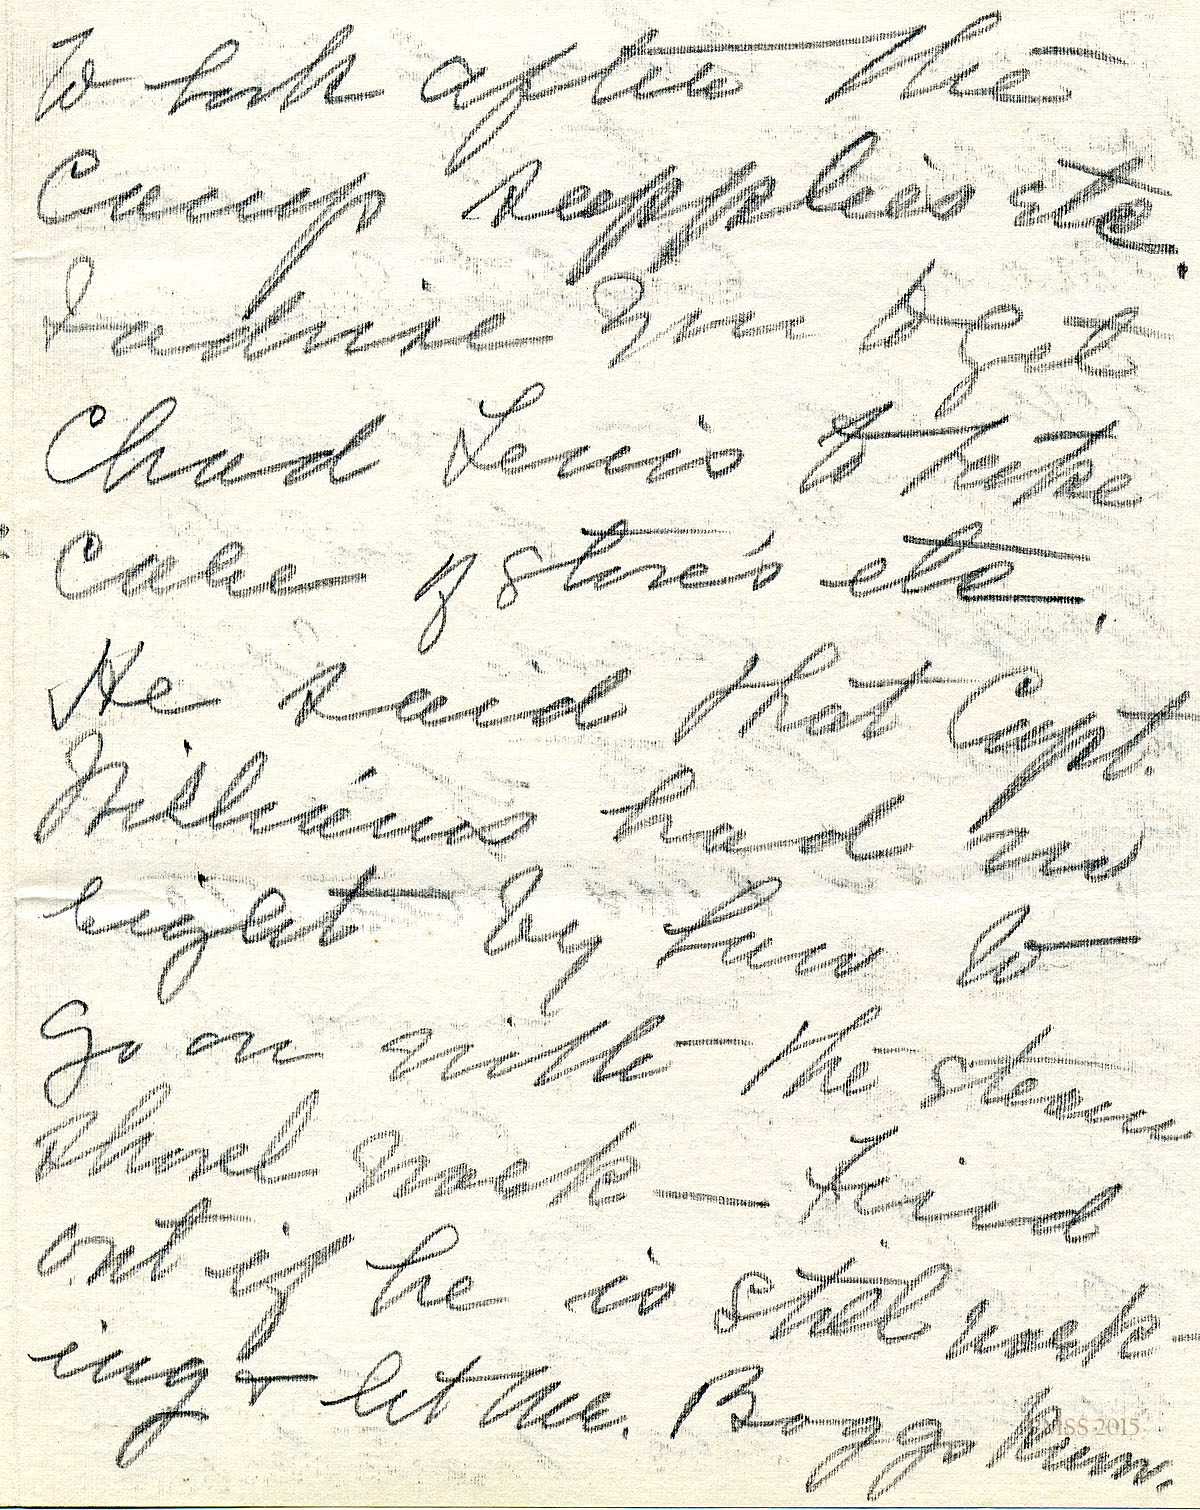 to look after the
Camp supplies etc.
I advise you to get
Chad Lewis to take
Care of store's etc.
He said that Capt.
Williams had no
right by law to
go on with the steam
shovel work — Find
out if he is still work-
ing & let me. Boggs know.
MSS 2015